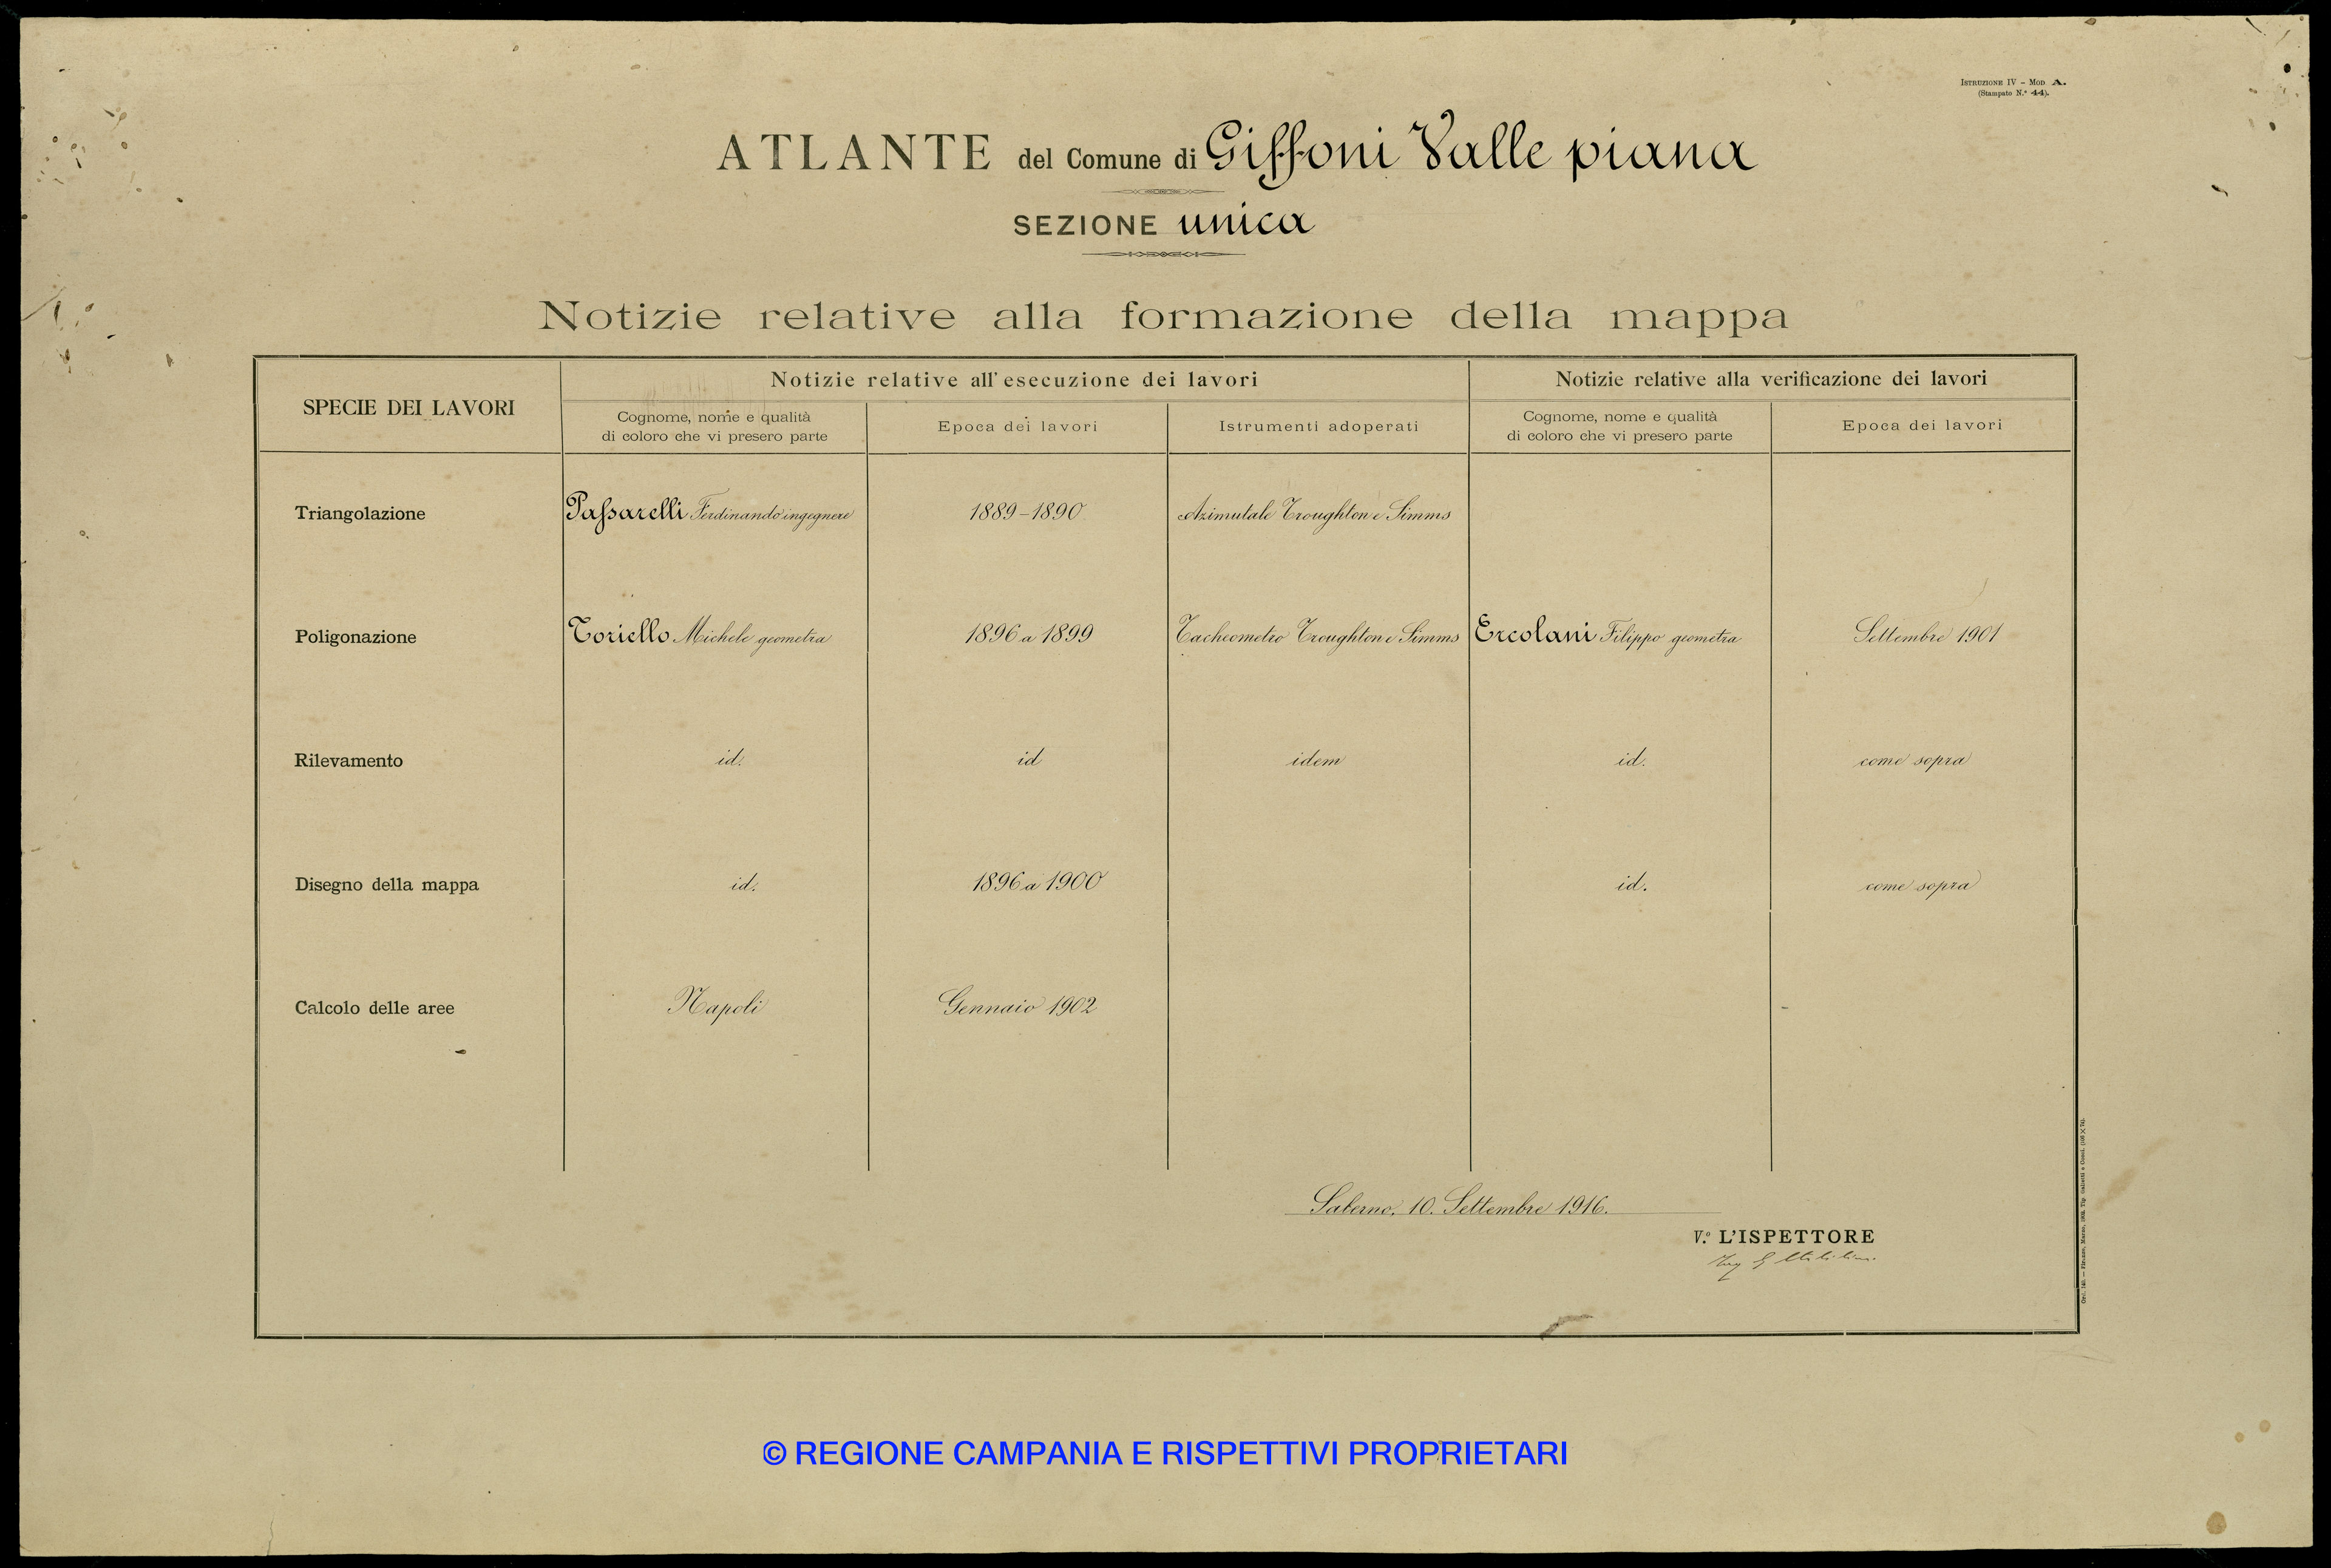 ISTRUZIONE IV - MOD. A.
(Stampato N.° 44).
ATLANTE del Comune di Giffoni Valle piana
SEZIONE unica
Notizie relative alla formazione della mappa
SPECIE DEI LAVORI
Notizie relative all'esecuzione dei lavori
Notizie relative alla verificazione dei lavori
Cognome, nome e qualità
di coloro che vi presero parte
Epoca dei lavori
Istrumenti adoperati
Cognome, nome e qualità
di coloro che vi presero parte
Epoca dei lavori
Triangolazione Paſsarelli Ferdinando ingegnere 1889-1890 Azimutale Troughton e Simms
Poligonazione Toriello Michele geometra 1896 a 1899 Tacheometro Troughton e Simms Ercolani Filippo geometra Settembre 1901
Rilevamento id. id idem id. come sopra
Disegno della mappa id. 1896 a 1900 id. come sopra
Calcolo delle aree Napoli Gennaio 1902
Salerno, 10. Settembre 1916.
V.° L'ISPETTORE
Ing G
© REGIONE CAMPANIA E RISPETTIVI PROPRIETARI